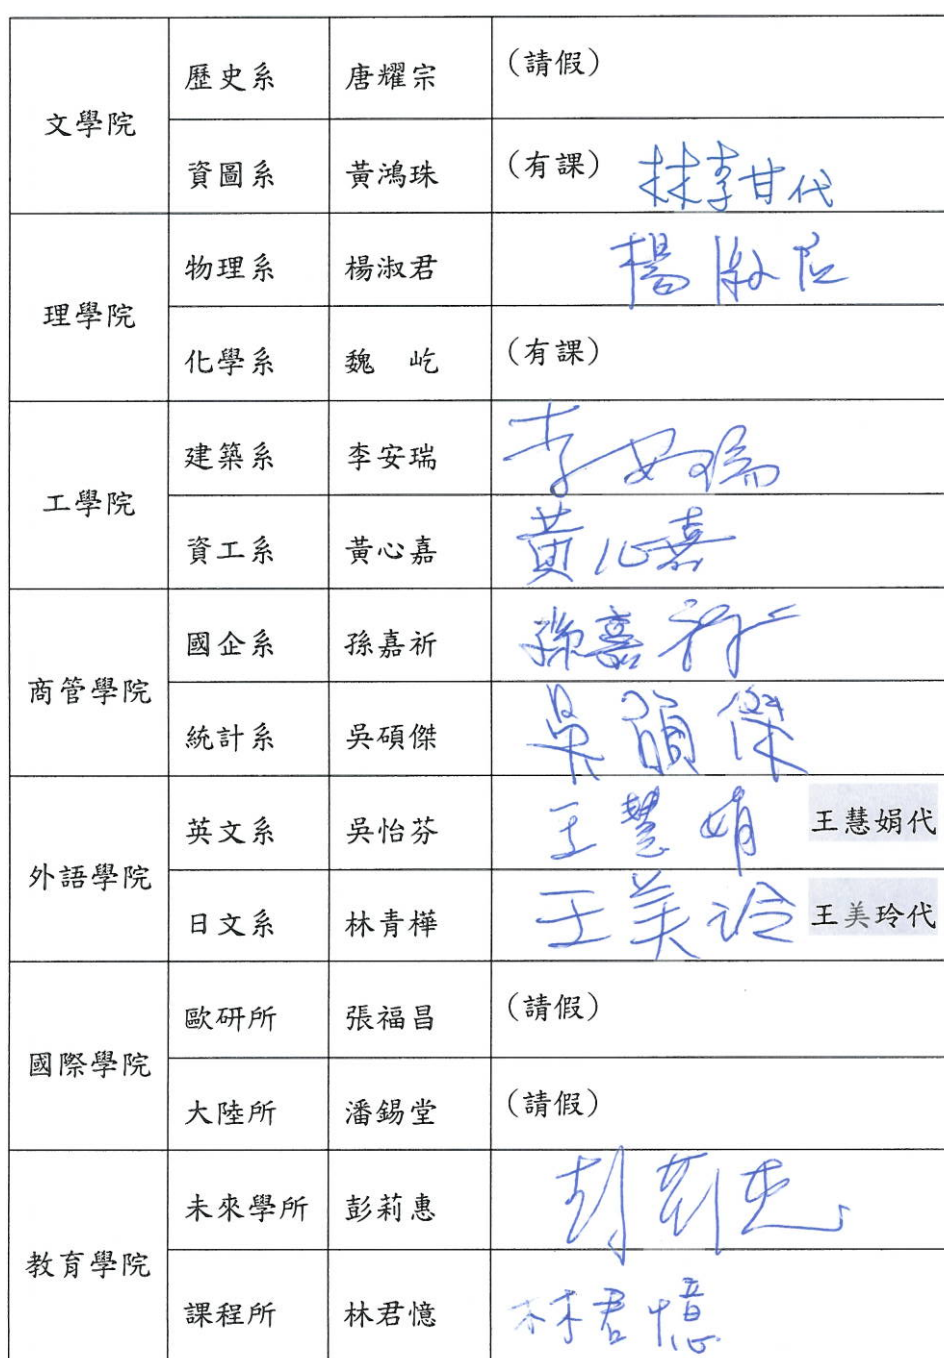 文學院
歷史系 唐耀宗 (請假)
資圖系 黃鴻珠 (有課) 林李甘代
理學院
物理系 楊淑君 楊淑君
化學系 魏 屹 (有課)
工學院
建築系 李安瑞 李安瑞
資工系 黃心嘉 黃心嘉
商管學院
國企系 孫嘉祈 孫嘉祈
統計系 吳碩傑 吳碩傑
外語學院
英文系 吳怡芬 王慧娟 王慧娟代
日文系 林青樺 王美玲 王美玲代
國際學院
歐研所 張福昌 (請假)
大陸所 潘錫堂 (請假)
教育學院
未來學所 彭莉惠 彭莉惠
課程所 林君憶 林君憶